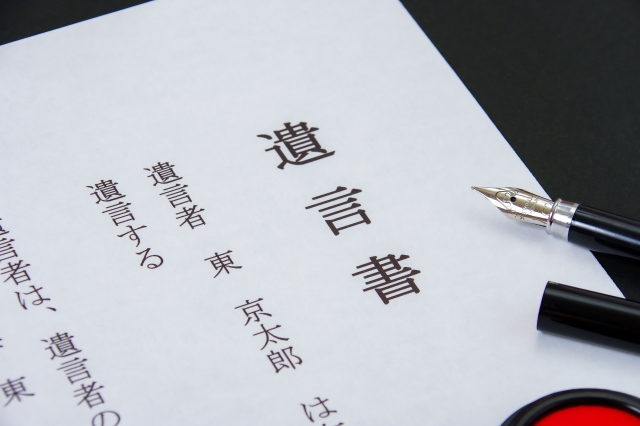 遺言書
遺言者 東 京太郎 は
遺言する
遺言者は、遺言者の
東